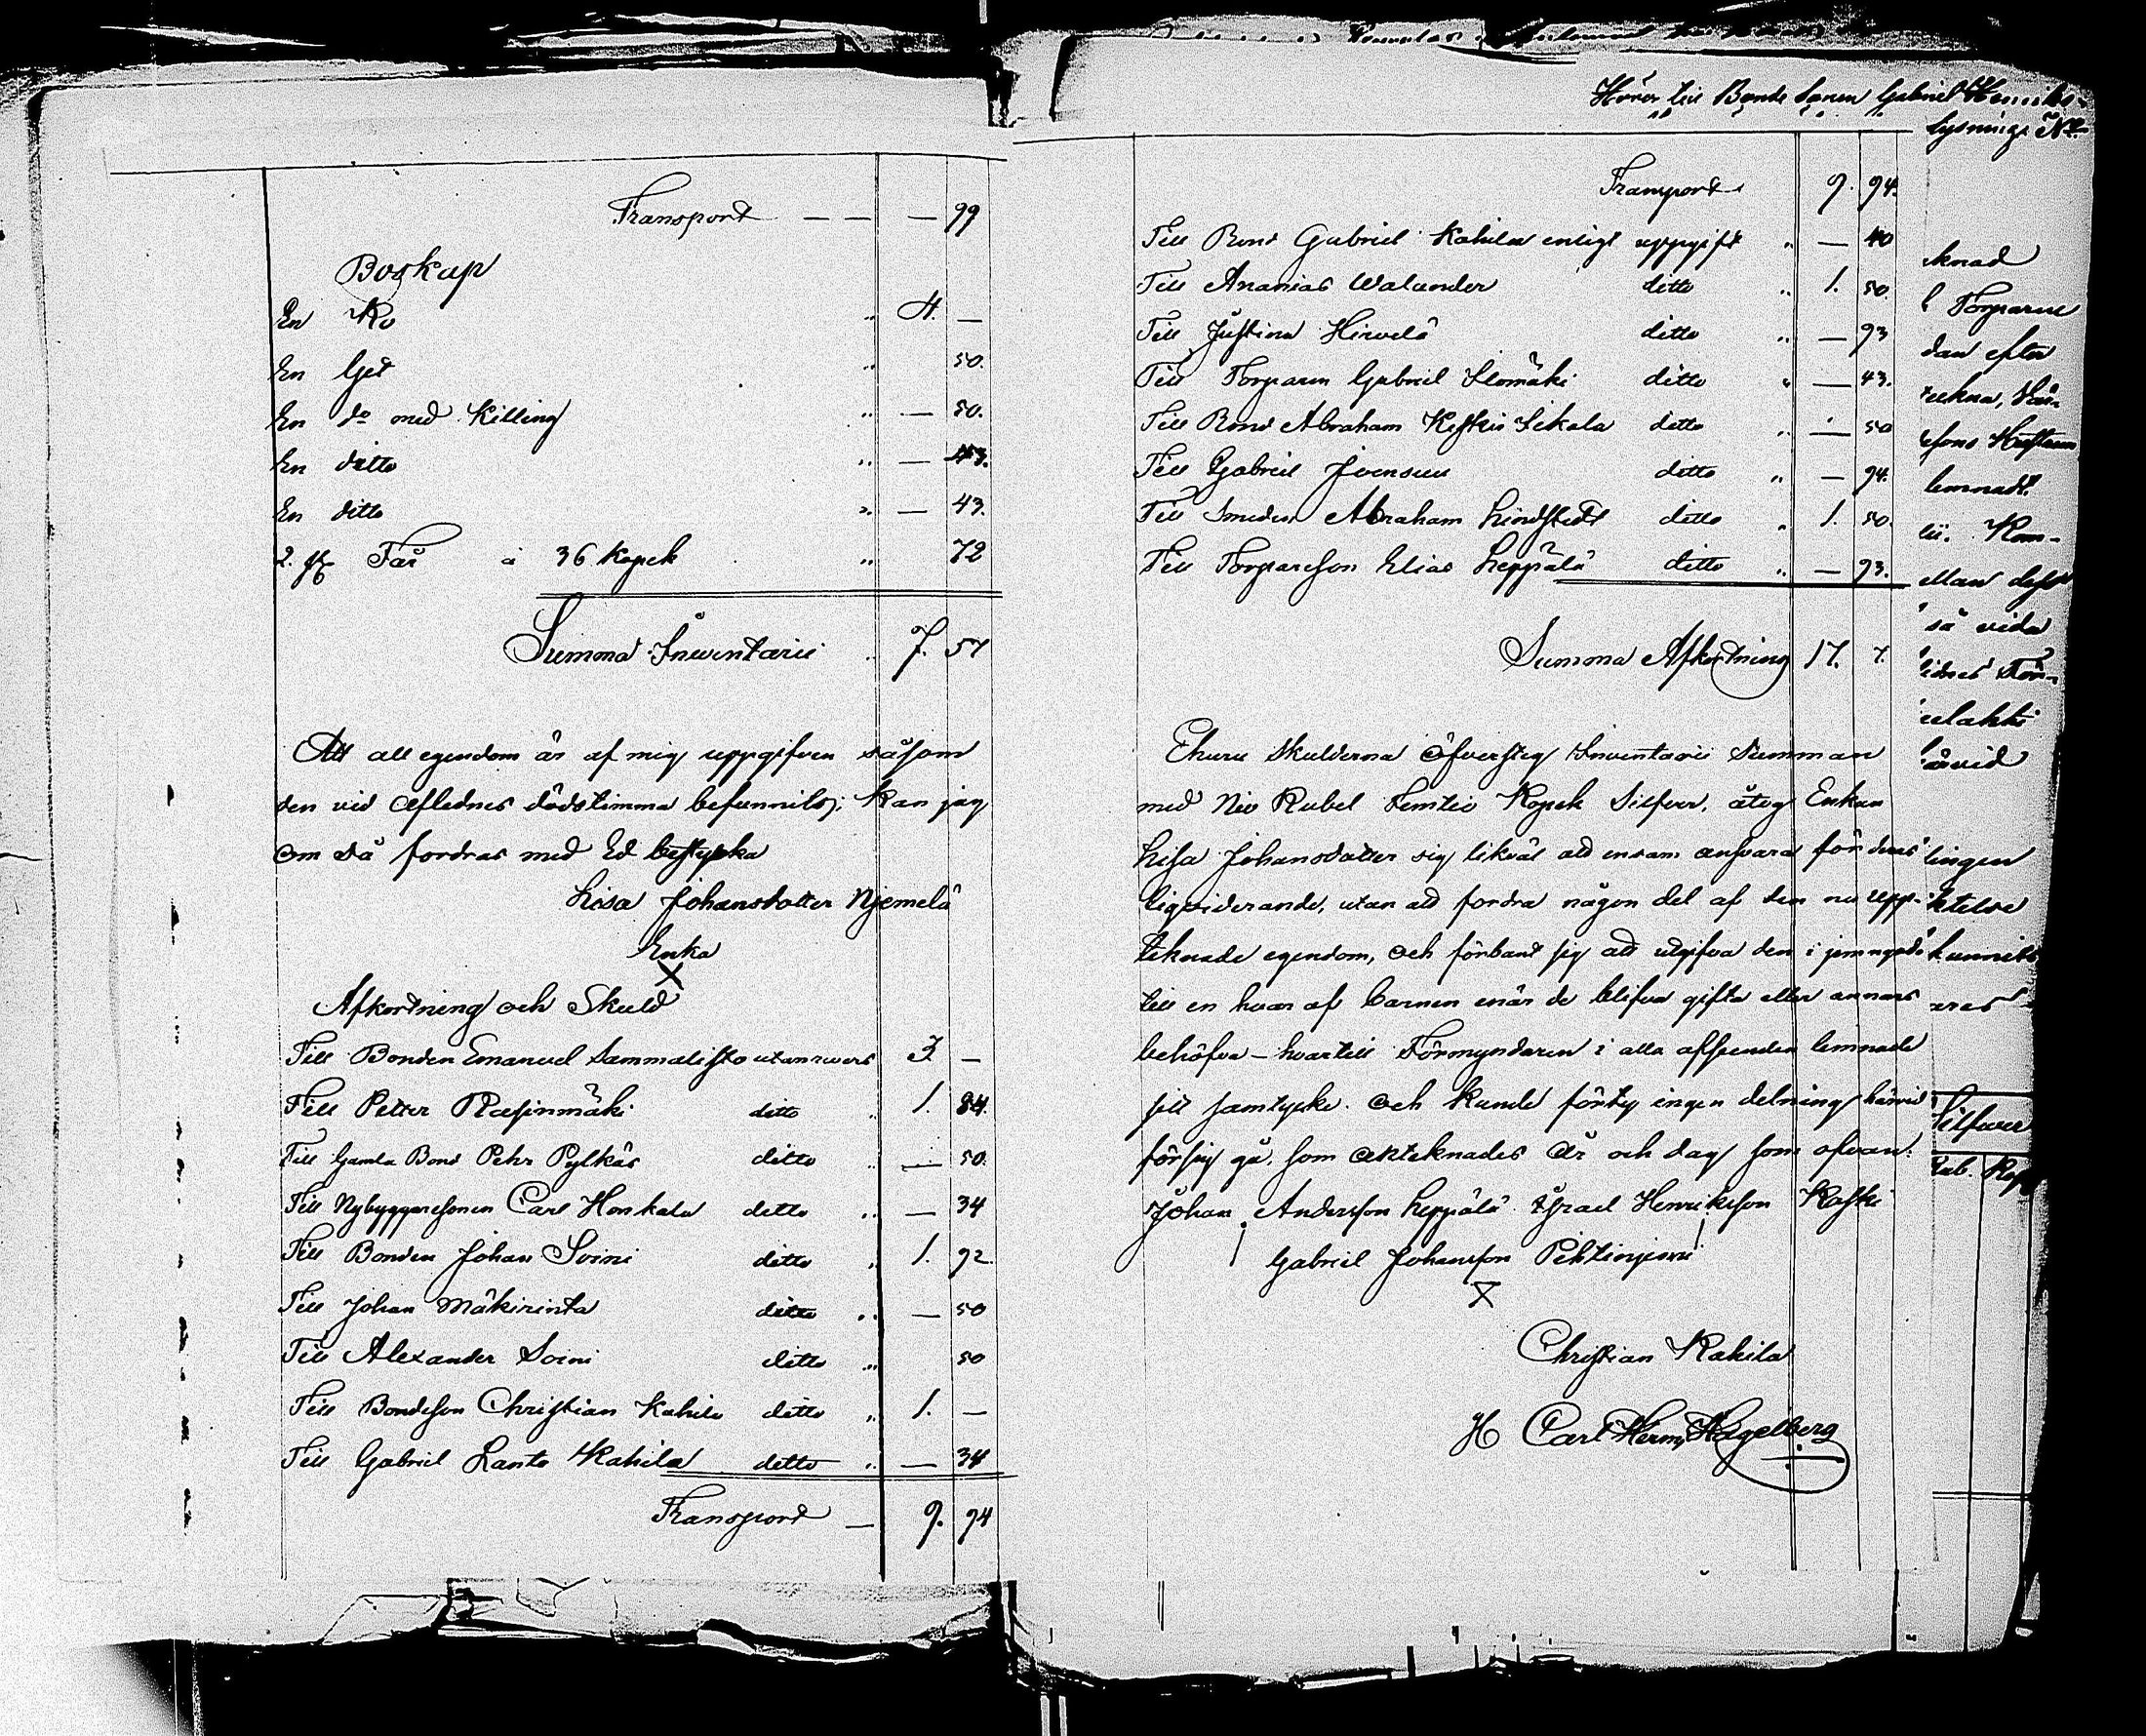 Transport — — — 99
Boskap
En Ko " 4. —
En Get " 50.
En do med Killing " — 50.
En ditto " — 43.
En ditto " — 43.
2. st Får à 36 Kopek " 72
Summa Inventarii " 7. 57
Att all egendom är af mig uppgifven såsom
den vid aflednes dödstimma befunnits; kan jag
om så fordras med Ed bestyrka
Lisa Johansdotter Njemelä
Enka
X
Afkortning och Skuld
Till Bonden Emanuel Sammalisto utan revers 3 —
Till Petter Rasinmäki ditto " 1. 84.
Till Gamla Bond Pehr Pylkäs ditto " — 50.
Till Nybyggaresonen Carl Honkala ditto " — 34
Till Bonden Johan Soini ditto " 1. 92.
Till Johan Mäkirinta ditto " — 50
Till Alexander Soini ditto " 50
Till Bondeson Christian Kahila ditto " 1. —
Till Gabriel Lanto Kahila ditto " — 34
Transport — 9. 94
Hörer till Bonde Sonen Gabriel Henriks-
Transport 9. 94.
Till Bond Gabriel Kahila enligt uppgift " — 40
Till Ananias Walander ditto " 1. 50.
Till Justina Hirvelä ditto " — 93
Till Torparen Gabriel Ilomäki ditto " — 43.
Till Bond Abraham Keski Sikala ditto " — 50
Till Gabriel Jvensuu ditto " — 94.
Till Smeden Abraham Lindstedt ditto " 1. 50.
Till Torpareson Elias Leppälä ditto " — 93.
Summa Afkortning 17. 7.
Ehuru Skulderna öfversteg Inventarii Summan
med Nio Rubel Femtio Kopek Silfver, åtog Enkan
Lisa Johansdotter sig likväl att ensam ansvara för deras
liqviderande, utan att fordra någon del af den nu upp-
teknade egendom, och förbant sig att utgifva den i
till en hvar af barnen enär de blifva gifta eller annars
behöfva – hvartill Förmyndaren i alla afseenden lemnade
sitt samtycke. och kunde förty ingen delning härvid
försiggå. som antecknades år och dag som ofvan.
Johan Andersson Leppälä Israel Henriksson Kaski
Gabriel Johansson Pihlinjemi
X
Christian Kahila
H Carl Herm Hägelberg
lysnings No
knad
Torparne
dan efter
lemnadt.
Kom-
så vida
ärvid
lingen
Silfver
Rub. Kop